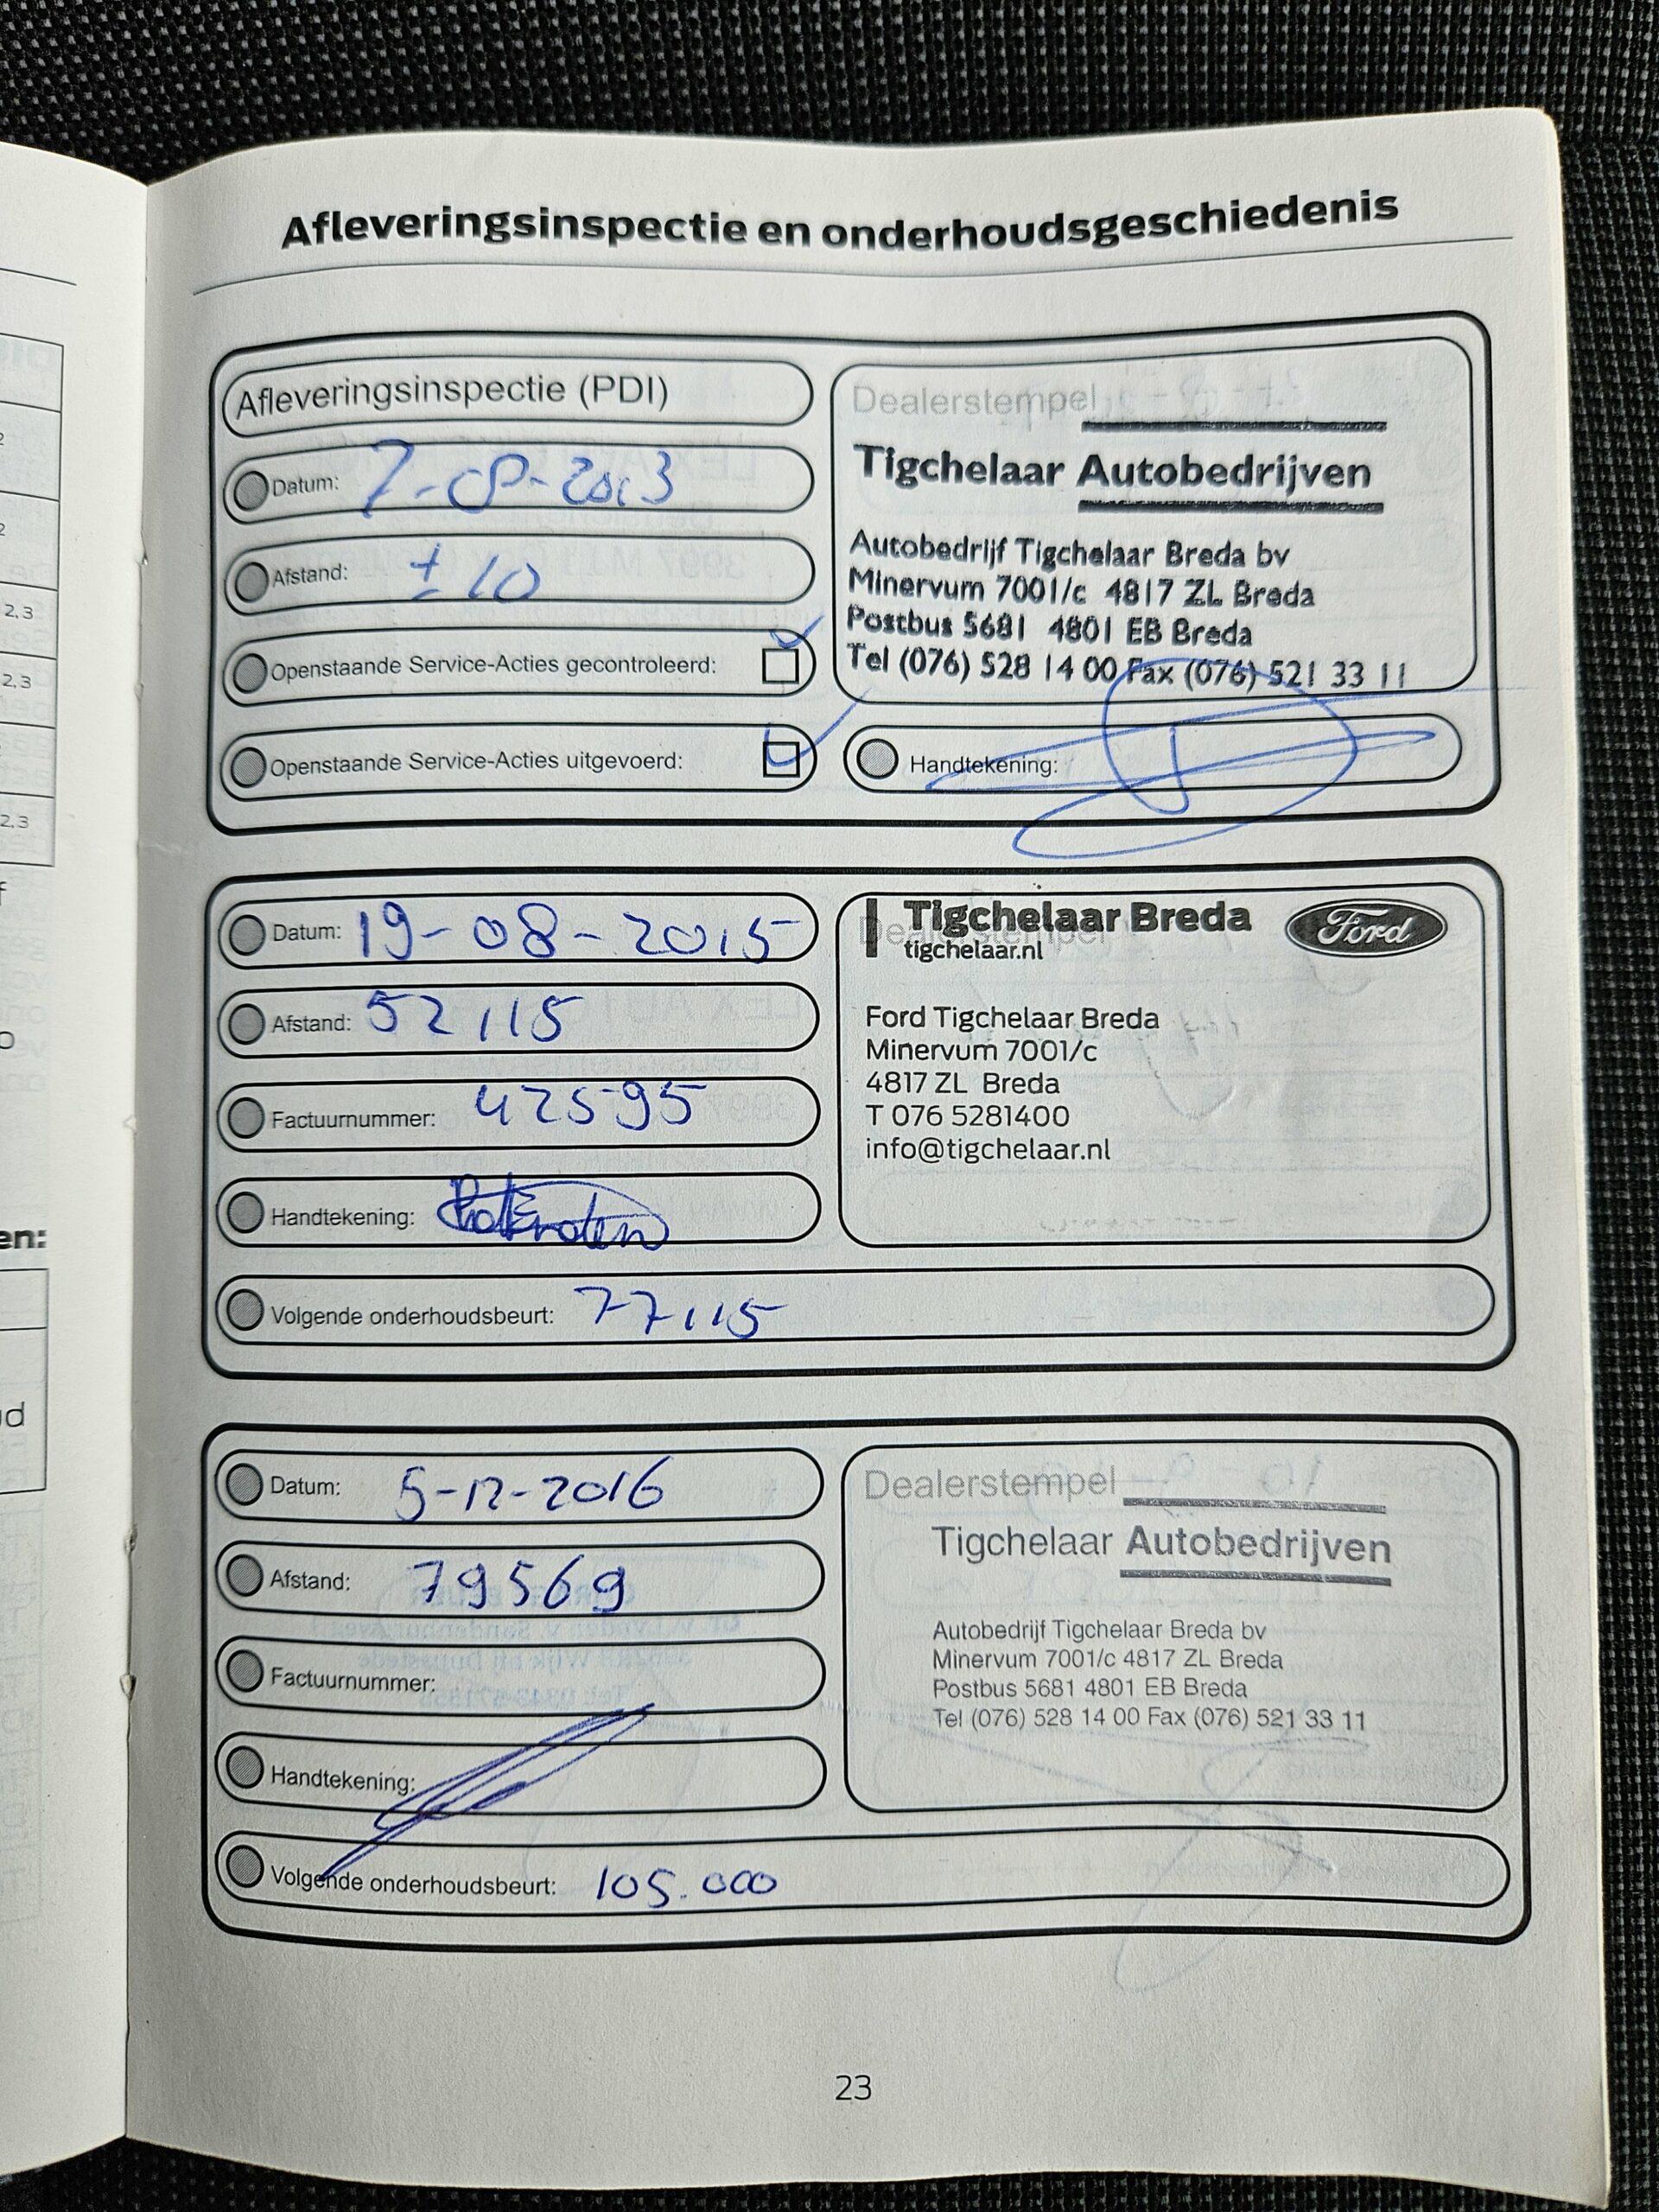 Afleveringsinspectie en onderhoudsgeschiedenis
Afleveringsinspectie (PDI)
Datum: 7-08-2013
Afstand: ± 10
Openstaande Service-Acties gecontroleerd:
Openstaande Service-Acties uitgevoerd:
Dealerstempel
Tigchelaar Autobedrijven
Autobedrijf Tigchelaar Breda bv
Minervum 7001/c 4817 ZL Breda
Postbus 5681 4801 EB Breda
Tel (076) 528 14 00 Fax (076) 521 33 11
Handtekening:
Datum: 19-08-2015
Afstand: 52115
Factuurnummer: 42595
Handtekening:
Volgende onderhoudsbeurt: 77115
Dealerstempel
Tigchelaar Breda
tigchelaar.nl
Ford
Ford Tigchelaar Breda
Minervum 7001/c
4817 ZL Breda
T 076 5281400
info@tigchelaar.nl
Datum: 5-12-2016
Afstand: 79569
Factuurnummer:
Handtekening:
Volgende onderhoudsbeurt: 105.000
Dealerstempel
Tigchelaar Autobedrijven
Autobedrijf Tigchelaar Breda bv
Minervum 7001/c 4817 ZL Breda
Postbus 5681 4801 EB Breda
Tel (076) 528 14 00 Fax (076) 521 33 11
23
2,3
2,3
2,3
en: